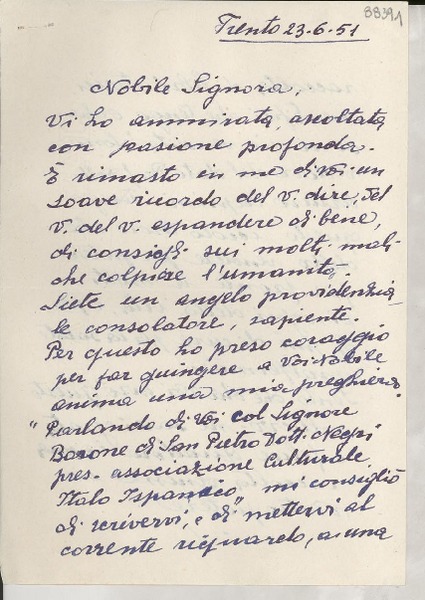 88391
Trento 23.6.51
Nobile Signora,
Vi ho ammirata, ascoltata
con pasione profonda.
È rimasto in me di Voi un
soave ricordo del v. dire, del
v. del v. espandere di bene,
di consigli sui molti mali
che colpire l'umanità.
Siete un angelo providenzia
le consolatore, sapiente.
Per questo ho preso coraggio
per far giungere a Voi Nobile
anima una mia preghiera.
"Parlando di Voi col Signore
Barone di San Pietro Dott. Negri
pres. associazione Culturale
Italo Ispanico", mi consigliò
di scrivervi, e di mettervi al
corrente riguardo, a una